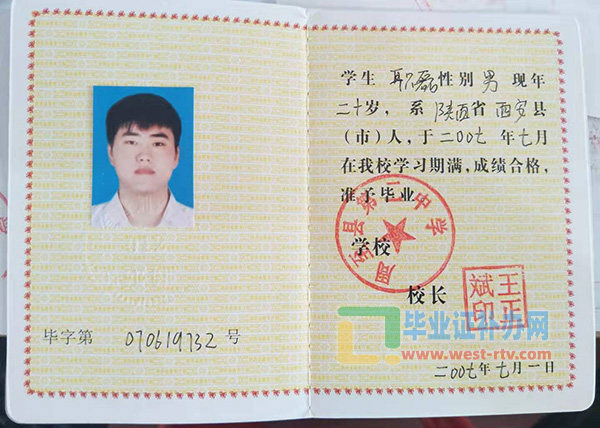 毕字第 070619732 号
学生 职磊 性别 男 现年
二十岁，系 陕西 省 西安 县
（市）人，于二00七 年 七 月
在我校学习期满，成绩合格，
准予毕业
学校
周至县第二中学
校长
王正斌印
毕业证补办网
www.west-rtv.com
二00七年七月一日